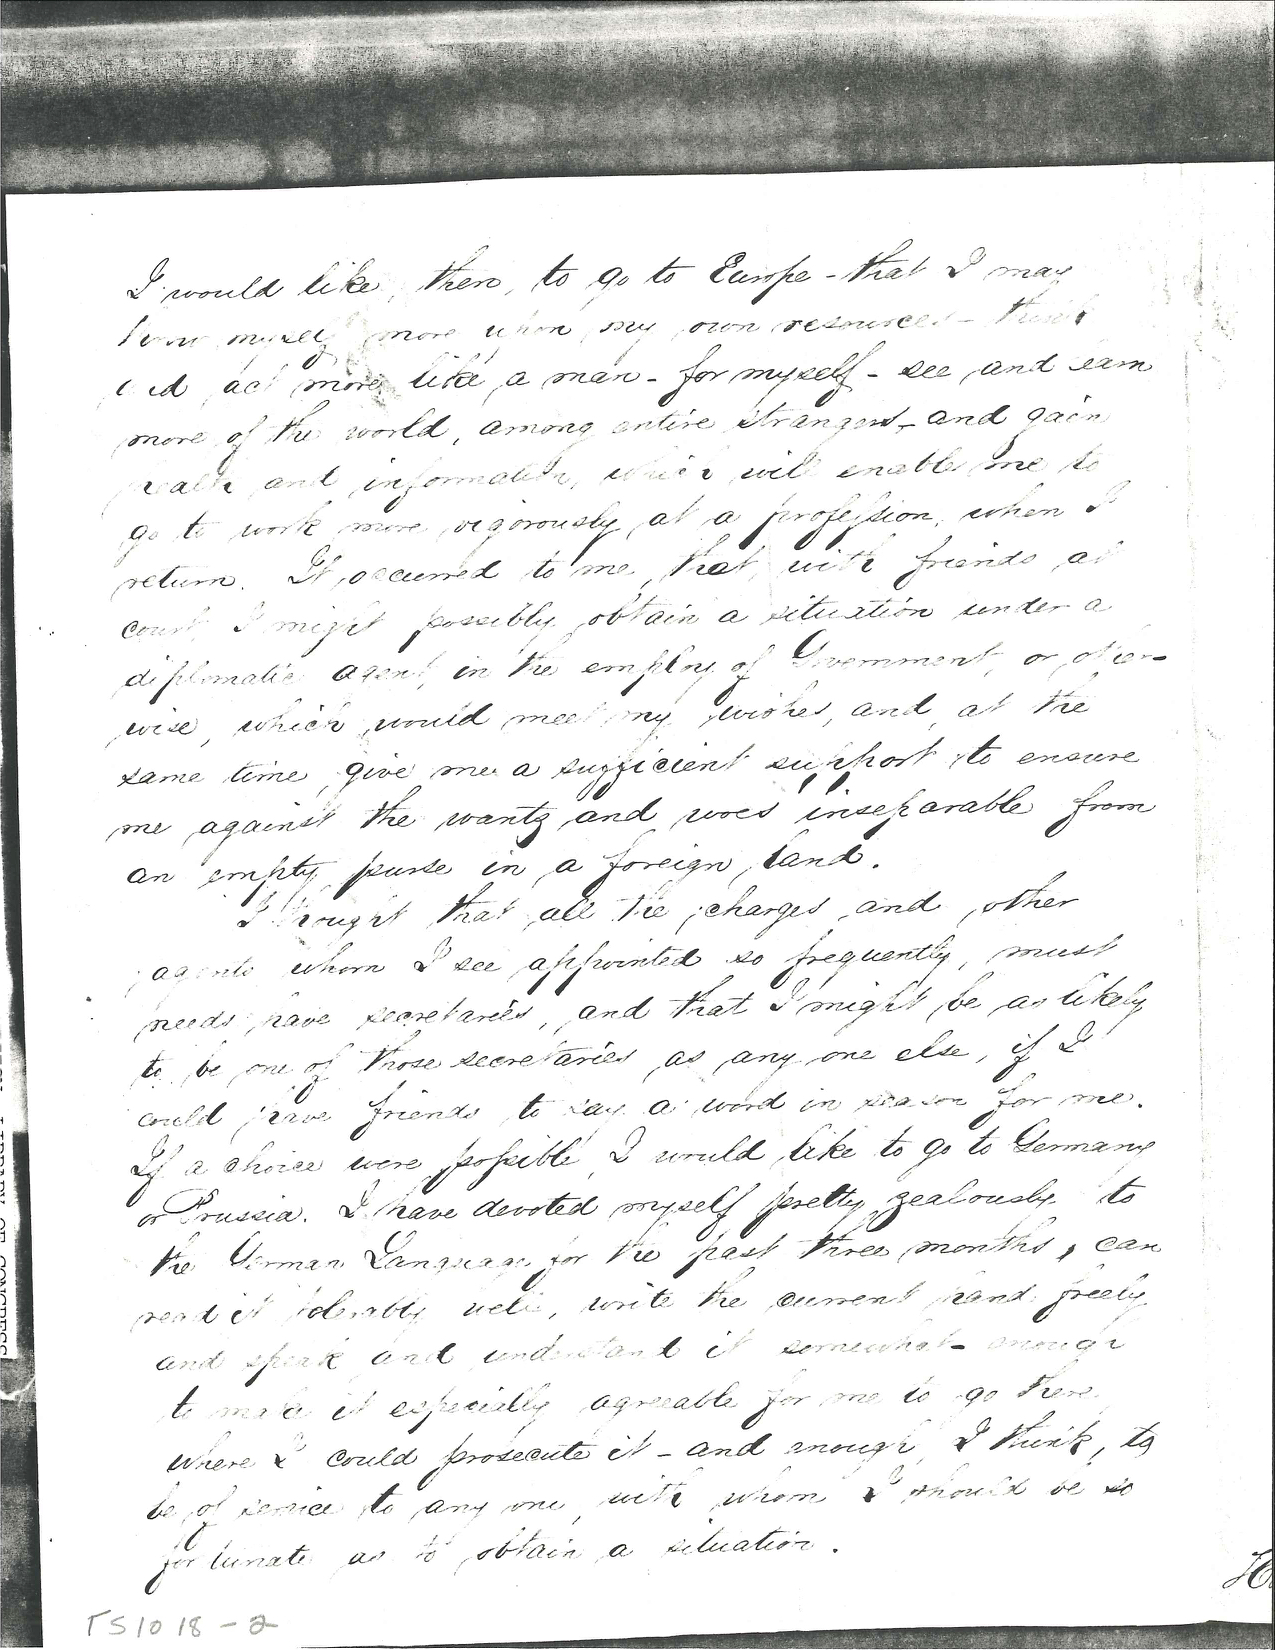 I would like, then, to go to Europe - that I may
throw myself more upon my own resources - think
and act more like a man - for myself - see and learn
more of the world, among entire strangers - and gain
health and information, which will enable me to
go to work more vigorously at a profession, when I
return. It occurred to me, that, with friends at
court, I might possibly obtain a situation under a
diplomatic agent, in the employ of Government, or other-
wise, which would meet my wishes, and, at the
same time, give me a sufficient support to ensure
me against the wants and woes inseparable from
an empty purse in a foreign land.
I thought that all the chargés and other
agents whom I see appointed so frequently, must
needs have secretaries, and that I might be as likely
to be one of those secretaries as any one else, if I
could have friends to say a word in season for me.
If a choice were possible, I would like to go to Germany
or Prussia. I have devoted myself pretty zealously to
the German Language for the past three months, can
read it tolerably well, write the current hand freely
and speak and understand it somewhat - enough
to make it especially agreeable for me to go there
where I could prosecute it - and enough, I think, to
be of service to any one, with whom I should be so
fortunate as to obtain a situation.
TS1018-2
LIBRARY OF CONGRESS